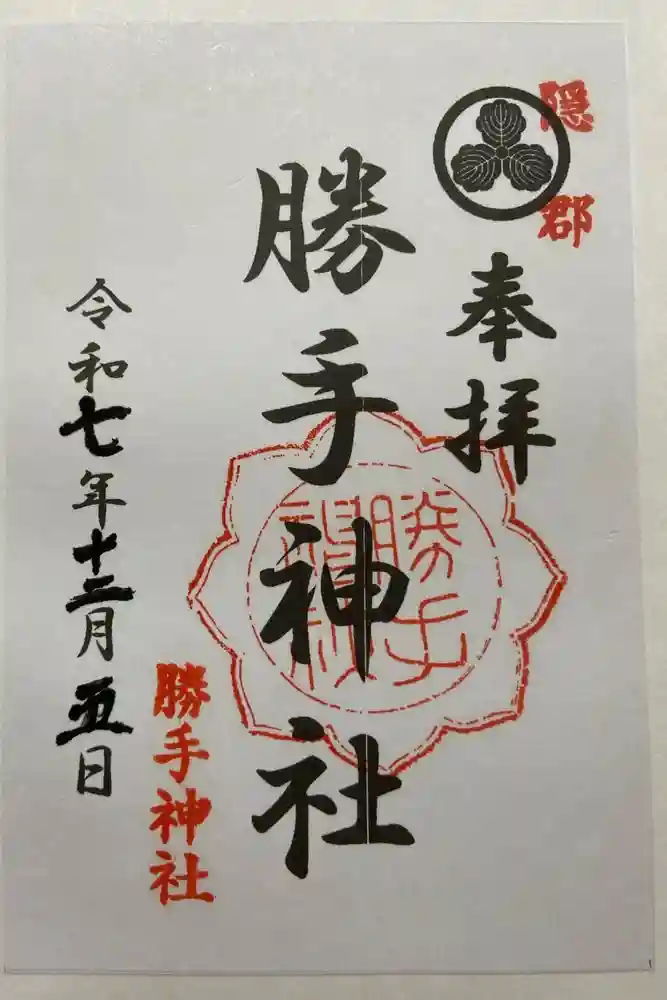 隠郡
奉拝
勝手神社
勝手
令和七年十二月五日
勝手神社